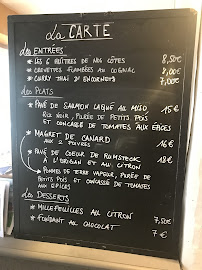 La CARTE
Les ENTRÉES
* LES 6 HUÎTRES DE NOS CÔTES 8,50€
* CREVETTES FLAMBÉES AU COGNAC 8,00€
* CURRY THAÏ D'ENCORNETS 7,00€
Les PLATS
* PAVÉ DE SAUMON LAQUÉ AU MISO, 15€
RIZ NOIR, PURÉE DE PETITS POIS
ET CONCASSÉ DE TOMATES AUX ÉPICES
* MAGRET DE CANARD
AUX 2 POIVRES 16€
* PAVÉ DE COEUR DE RUMSTECK 18€
À L'ORIGAN ET AU CITRON
* POMMES DE TERRE VAPEUR, PURÉE DE
PETITS POIS ET CONCASSÉ DE TOMATES
AUX ÉPICES
Les DESSERTS
* MILLEFEUILLES AU CITRON 7,50€
* FONDANT AU CHOCOLAT 7€